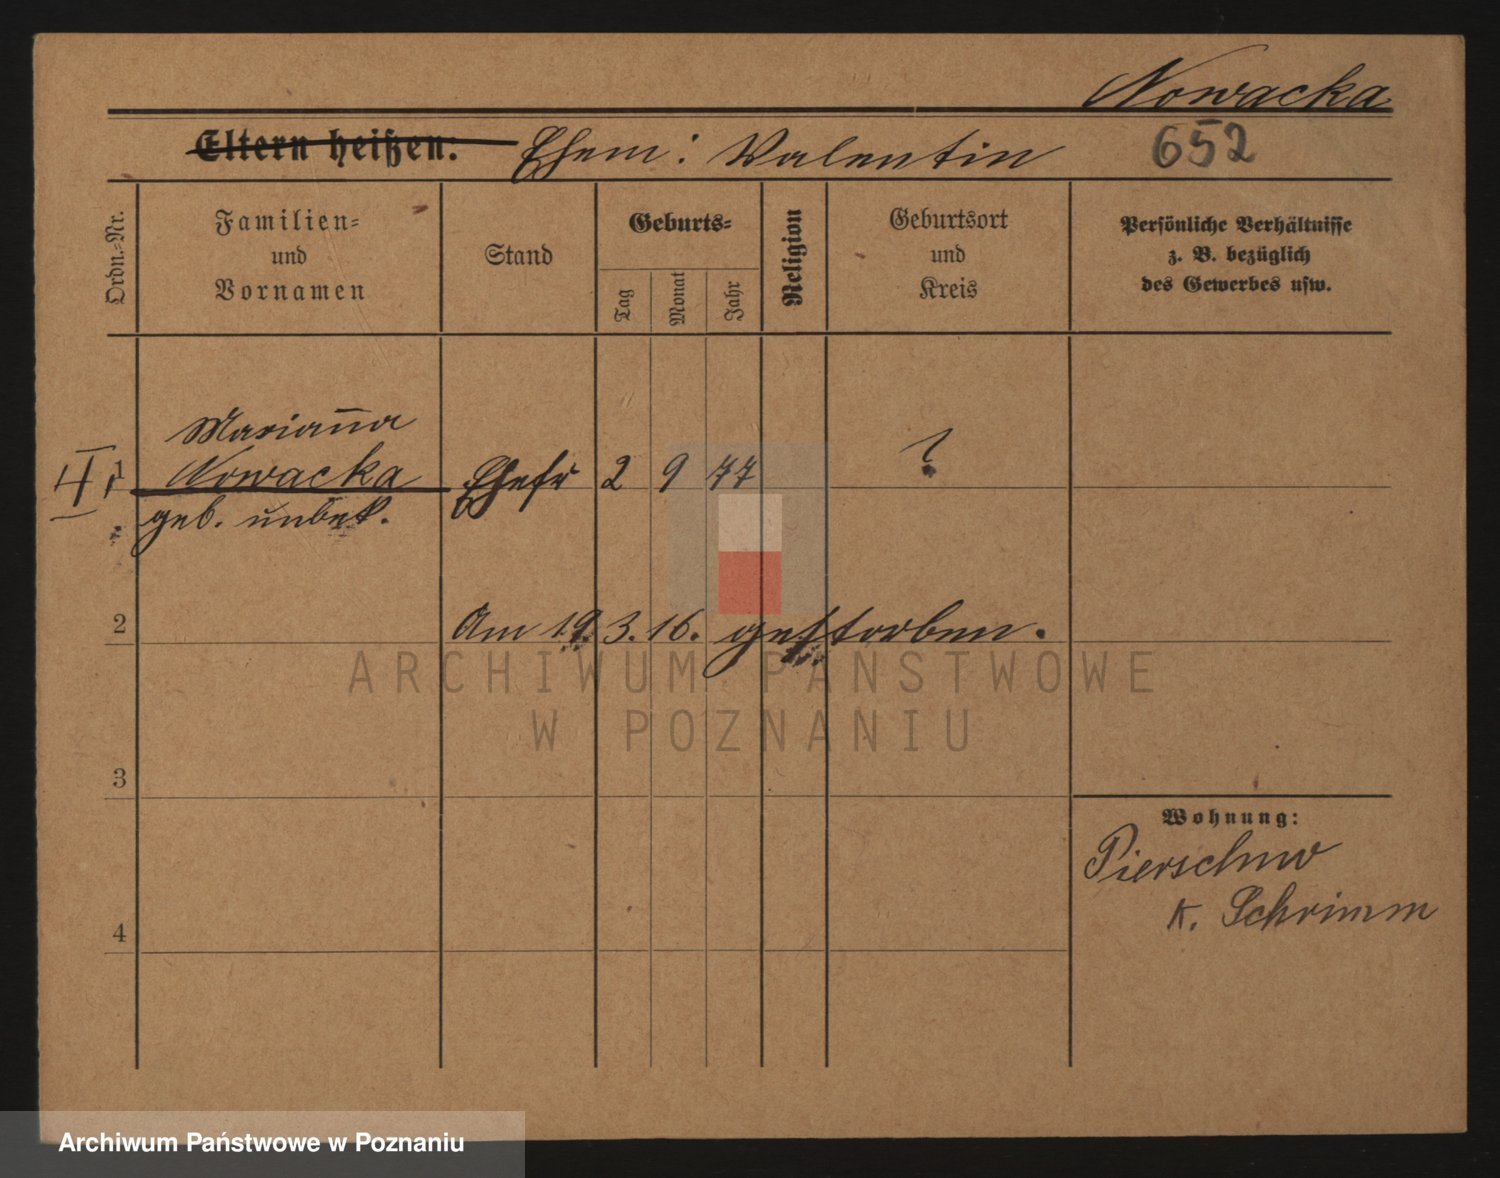 Nowacka
Eltern heißen: Ehem: Valentin 652
Ordn.=Nr.
Familien=
und
Vornamen
Stand
Geburts=
Tag
Monat
Jahr
Religion
Geburtsort
und
Kreis
Persönliche Verhältnisse
z. B. bezüglich
des Gewerbes usw.
Marian̄a
II 1 Nowacka Ehefr 2 9 77 ?
geb. unbek.
2 Am 19.3.16. gestorben.
ARCHIWUM PAŃSTWOWE
W POZNANIU
3
Wohnung:
Pierschno
K. Schrimm
4
Archiwum Państwowe w Poznaniu